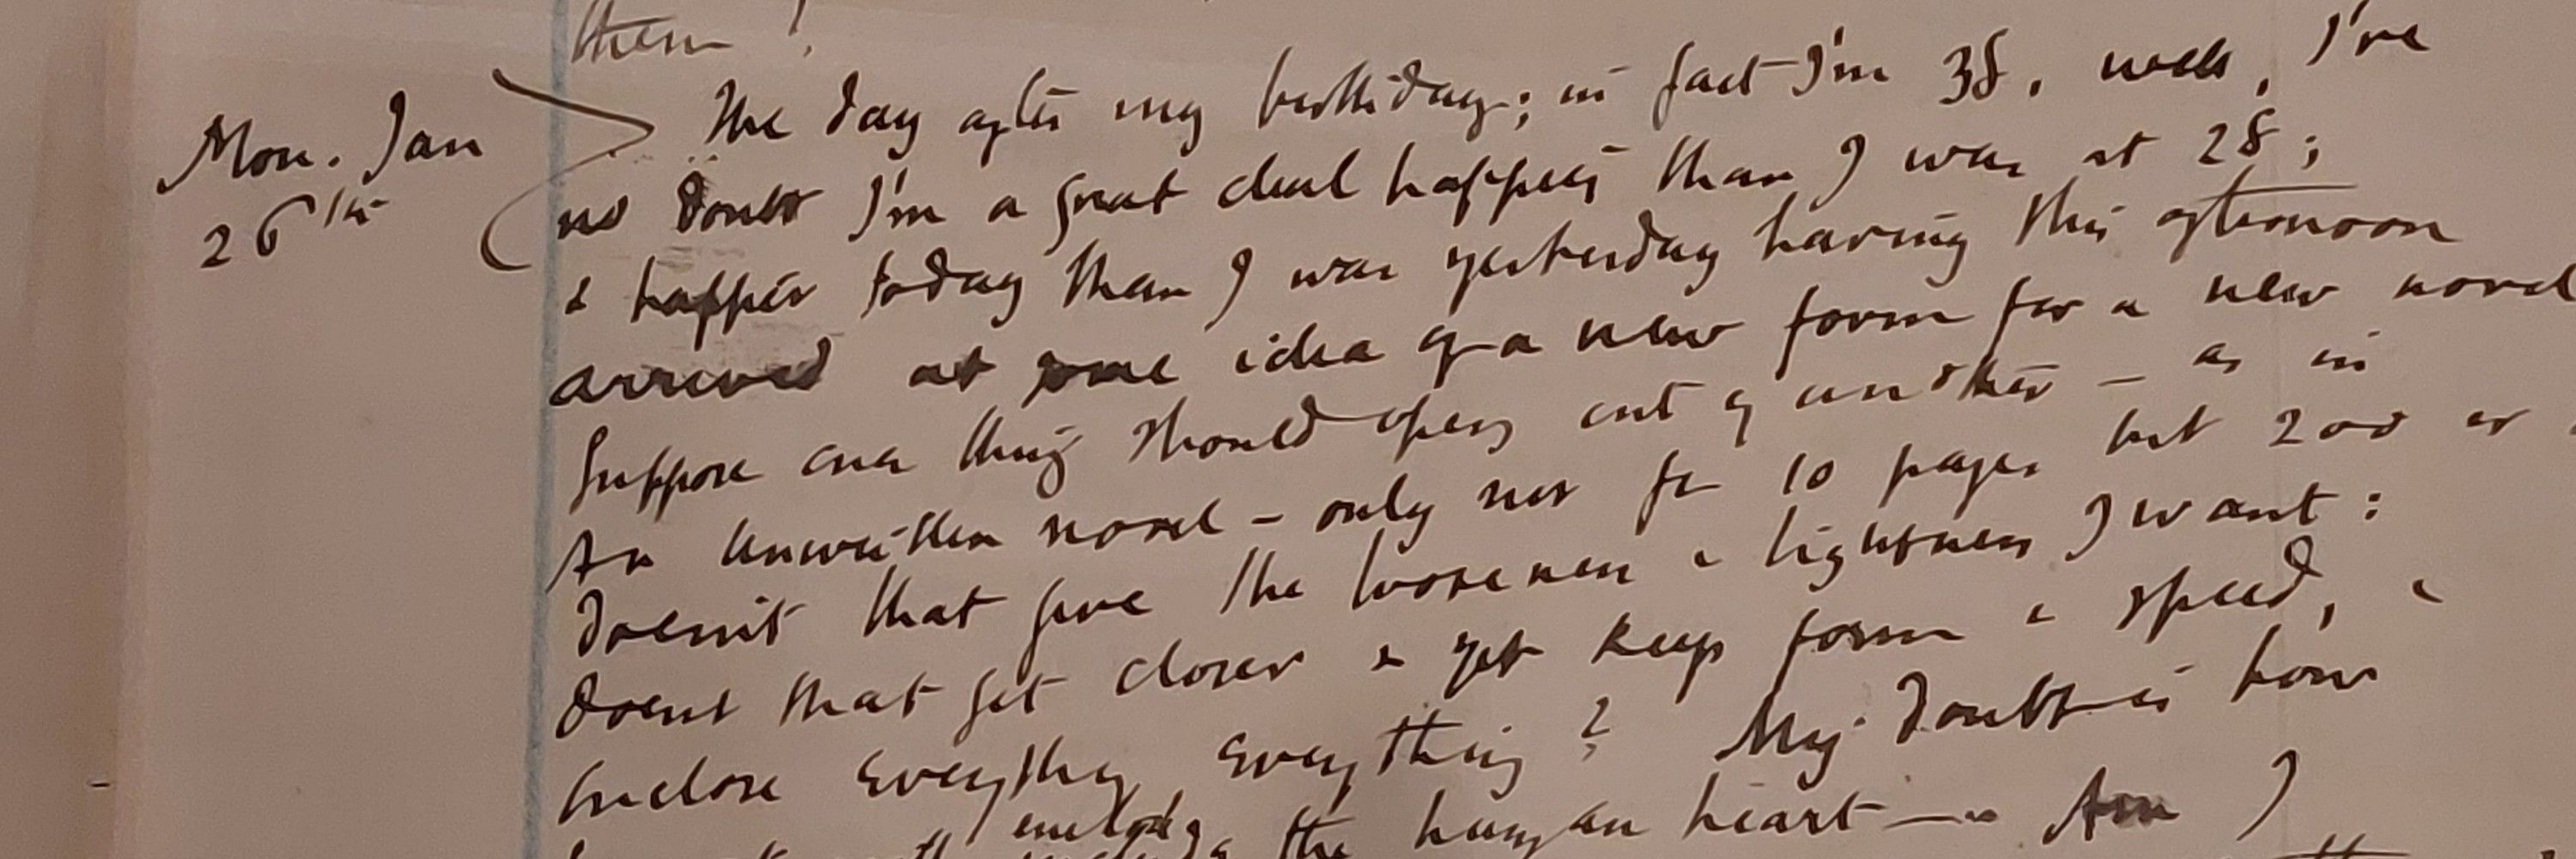 them!
Mon. Jan
26th
The day after my birthday; in fact I'm 38, well, I've
no doubt I'm a great deal happier than I was at 28;
& happier today than I was yesterday having this afternoon
arrived at some idea of a new form for a new novel
Suppose one thing should open out of another — as in
An Unwritten novel — only not for 10 pages but 200 or
doesn't that give the looseness & lightness I want:
doesnt that get closer & yet keep form & speed, &
enclose everything everything? My doubt is how
the human heart — Am I